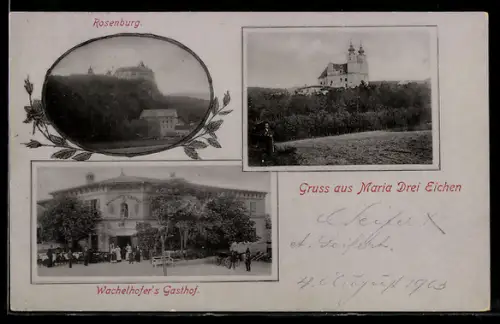 Rosenburg.
Gruss aus Maria Drei Eichen
Wachelhofer's Gasthof.
4. August 1903